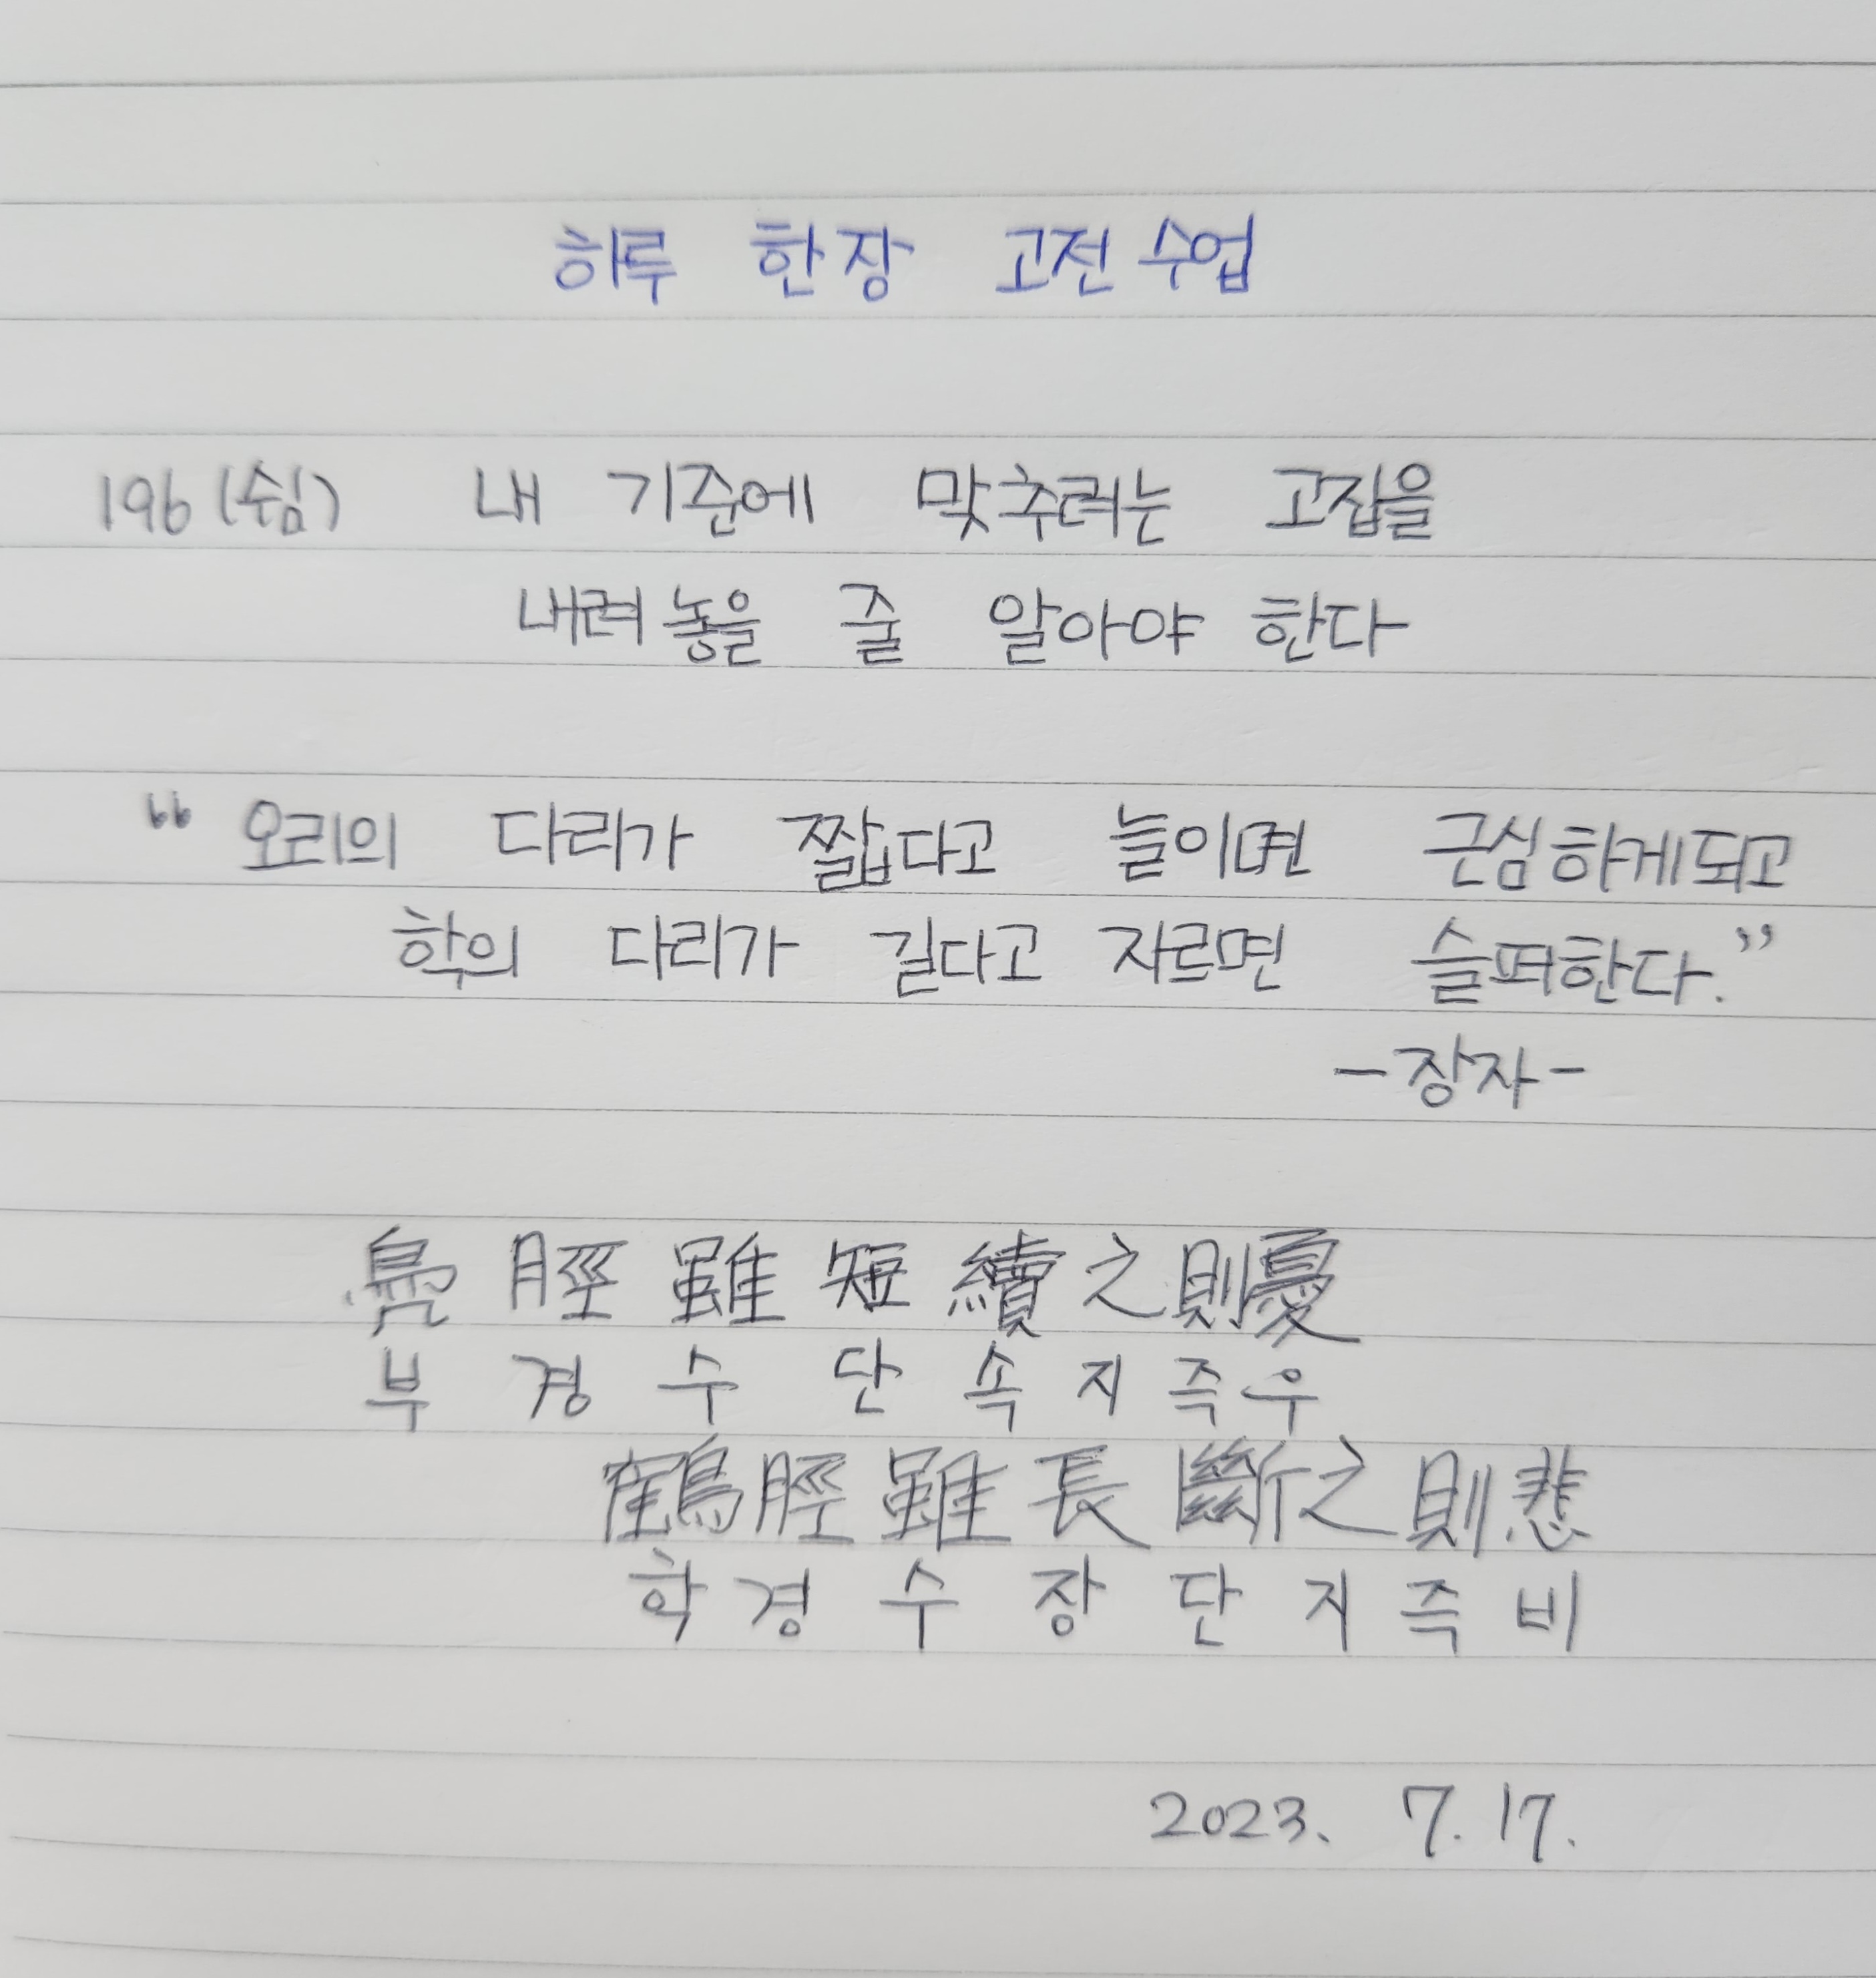 하루 한장 고전수업
196 (쉼) 내 기준에 맞추려는 고집을
내려놓을 줄 알아야 한다
“오리의 다리가 짧다고 늘이면 근심하게되고
학의 다리가 길다고 자르면 슬퍼한다.”
-장자-
鳧脛雖短續之則憂
부경수단속지즉우
鶴脛雖長斷之則悲
학경수장단지즉비
2023. 7. 17.